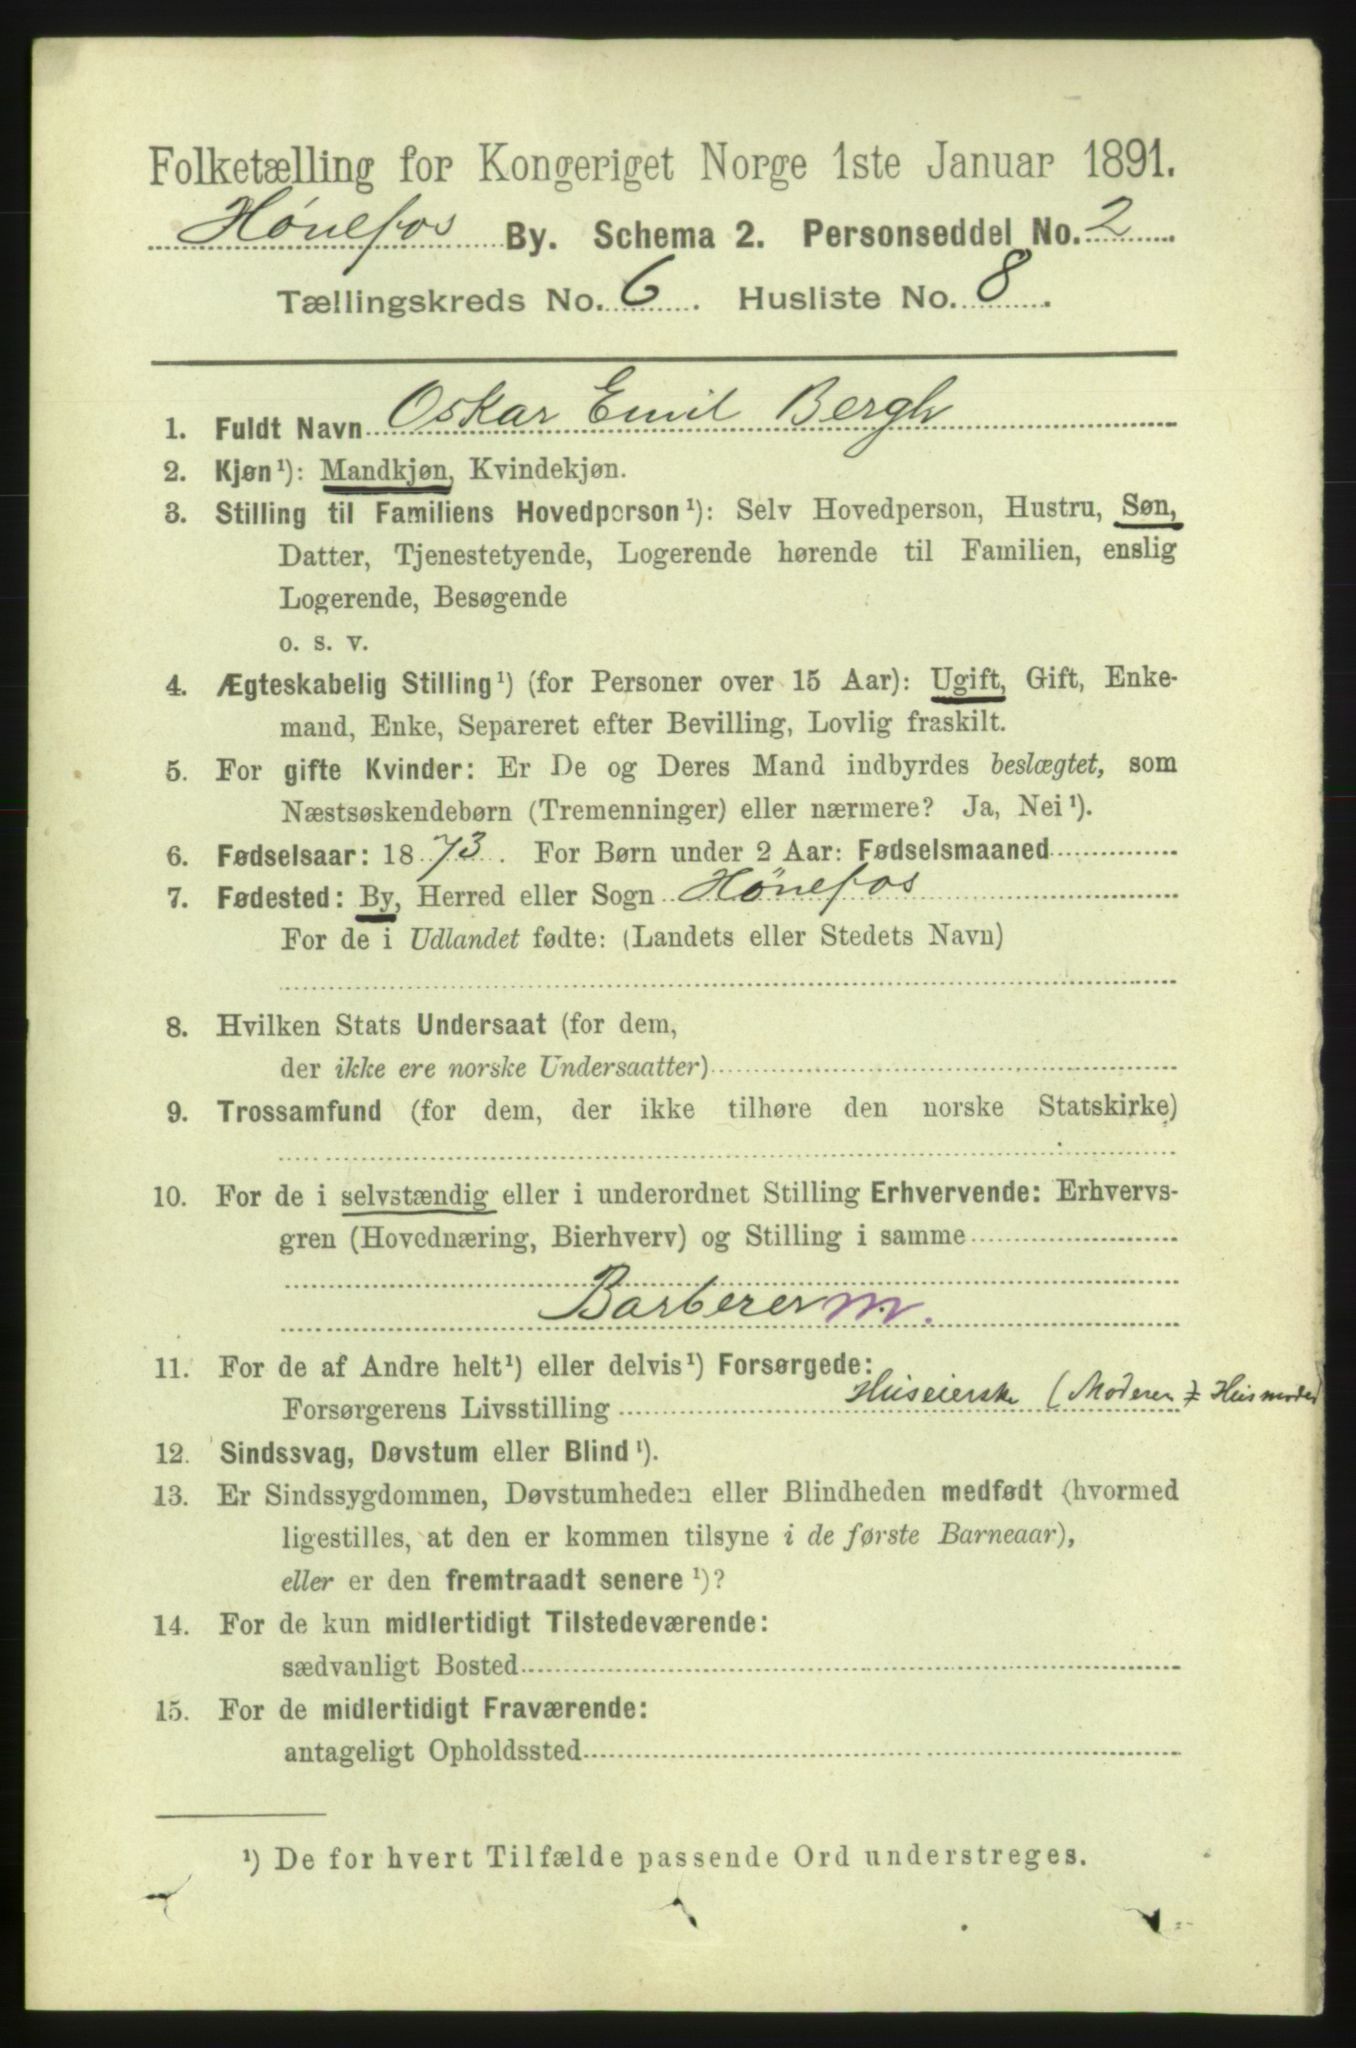 Folketælling for Kongeriget Norge 1ste Januar 1891.
Hönefos By. Schema 2. Personseddel No. 2
Tællingskreds No. 6. Husliste No. 8.
1. Fuldt Navn Oskar Emil Bergh
2. Kjøn¹): Mandkjøn, Kvindekjøn.
3. Stilling til Familiens Hovedperson¹): Selv Hovedperson, Hustru, Søn,
Datter, Tjenestetyende, Logerende hørende til Familien, enslig
Logerende, Besøgende
o. s. v.
4. Ægteskabelig Stilling¹) (for Personer over 15 Aar): Ugift, Gift, Enke-
mand, Enke, Separeret efter Bevilling, Lovlig fraskilt.
5. For gifte Kvinder: Er De og Deres Mand indbyrdes beslægtet, som
Næstsøskendebørn (Tremenninger) eller nærmere? Ja, Nei¹).
6. Fødselsaar: 1873. For Børn under 2 Aar: Fødselsmaaned
7. Fødested: By, Herred eller Sogn Hönefos
For de i Udlandet fødte: (Landets eller Stedets Navn)
8. Hvilken Stats Undersaat (for dem,
der ikke ere norske Undersaatter)
9. Trossamfund (for dem, der ikke tilhøre den norske Statskirke)
10. For de i selvstændig eller i underordnet Stilling Erhvervende: Erhvervs-
gren (Hovednæring, Bierhverv) og Stilling i samme
Barberer m.
11. For de af Andre helt¹) eller delvis¹) Forsørgede:
Forsørgerens Livsstilling Huseierske (Moderen Husmoder)
12. Sindssvag, Døvstum eller Blind¹).
13. Er Sindssygdommen, Døvstumheden eller Blindheden medfødt (hvormed
ligestilles, at den er kommen tilsyne i de første Barneaar),
eller er den fremtraadt senere¹)?
14. For de kun midlertidigt Tilstedeværende:
sædvanligt Bosted
15. For de midlertidigt Fraværende:
antageligt Opholdssted
¹) De for hvert Tilfælde passende Ord understreges.